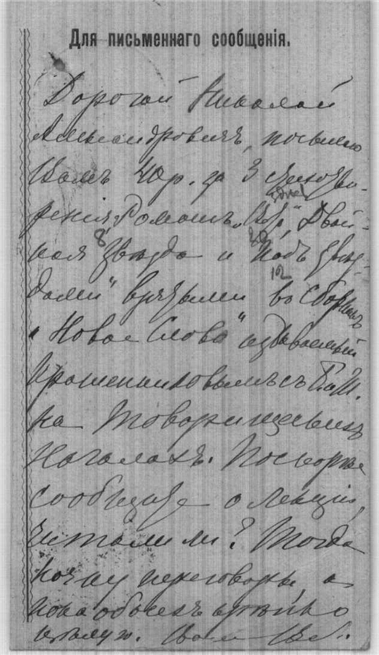 Для письменнаго сообщенія.
Дорогой Николай
Александровичъ, посылаю
Вамъ 40 р. за 3 стихотво-
ренія "Двой-
ная звѣзда и Подъ звѣз-
дами" взятыми въ Сборникъ
"Новое Слово" издаваемый
на товарищескихъ
началахъ. Поскорѣе
сообщите о лекціи,
читали ли? Тогда
начну переговоры а
пока обоихъ крѣпко
цѣлую. Ваша